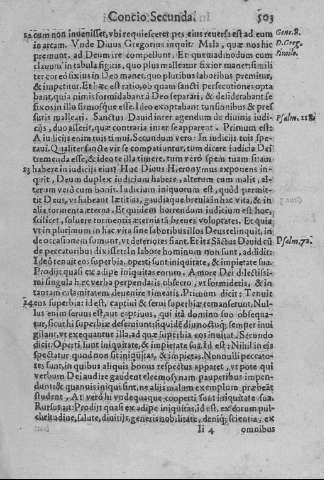 Concio Secunda. 503
cum non inuenisset, vbi requiesceret pes eius reuersa est ad eum Gene. 8.
in arcam. Vnde Diuus Gregorius inquit: Mala, quæ nos hic D. Greg.
premunt, ad Deum ire compellunt. Et quemadmodum cum Simile.
clauum in tabula figis, quo plus malleatur fixior manet: simili
ter cor eo fixius in Deo manet, quo pluribus laboribus premitur,
& impetitur. Et hæc est ratio, ob quam sancti persecutiones opta
bant, quia
fixos in illo firmosque esse. Ideo exoptabant tunsiones & pres
suris malleari. Sanctus Dauid inter agendum de diuinis iudi- Psalm. 118.
cijs, duo asserit, quæ contraria inter se apparent. Primum est:
A iudicijs enim tuis timui. Secundum vero: In iudicijs tuis spe-
raui. Qualiter sancte vir se compatiuntur, tum dicere iudicia Dei
tremenda esse, & ideo te illa timere, tum verò spem tuam sitam
23 habere in iudicijs eius? Hæc Diuus Hieronymus exponens in-
quit, Deum duplex iudicium habere, alterum cum malis, al-
terum verò cum bonis. Iudicium iniquorum est, quòd permit-
tit Deus, vt habeant lætitias, gaudiaque breuia in hac vita, & in
alia tormenta æterna. Et quidem horrendum iudicium est hoc,
scilicet, soluere tormentis æternis breues voluptates. Et quia
vt in plurimum in hac vita sine laboribus illos Deus relinquit, in
de occasionem sumunt, vt deteriores fiant. Et ita Sāctus Dauid cū Psalm. 72.
de peccatoribus dixisset: In labore hominum non sunt, addidit:
Ideo tenuit eos superbia, operti sunt iniquitate, & impietate sua.
Prodijt quasi ex adipe iniquitas eorum. Amore Dei dilectissi-
mi singula hæc verba perpendatis obsecro, vt formidetis, & in
tantam calamitatem deuenire timeatis. Primum dicit: Tenuit
24 eos superbia: id est, captiui & serui superbiæ remanserunt. Nul-
lus enim seruus est, aut captiuus, qui ita domino suo obsequa-
tur, sicut hi superbiæ deseruiunt semper inui
gilant, vt exequantur illa, ad quæ superbia eos inuitat. Secūndo
dicit: Operti sunt iniquitate, & impietate sua. Id est: Nihil in eis
spectatur quod non sit iniquitas, & impietas. Nonnulli peccato-
res sunt, in quibus aliquis bonus respectus apparet, vt pote qui
verbum Dei audire gaudent eleemosynam pauperibus impen-
dunt: & quamuis iniqui sint, ne alijs malam exemplum præbeāt
student, At verò hi vndequaque cooperti sunt iniquitate sua.
Rursus ait: Prodijt quasi ex adipe iniquitas, id est, ex eorum pul-
chritudine, salute, diuitijs, generis nobilitate, deniq; scientia, ex
Ii 4 omnibus